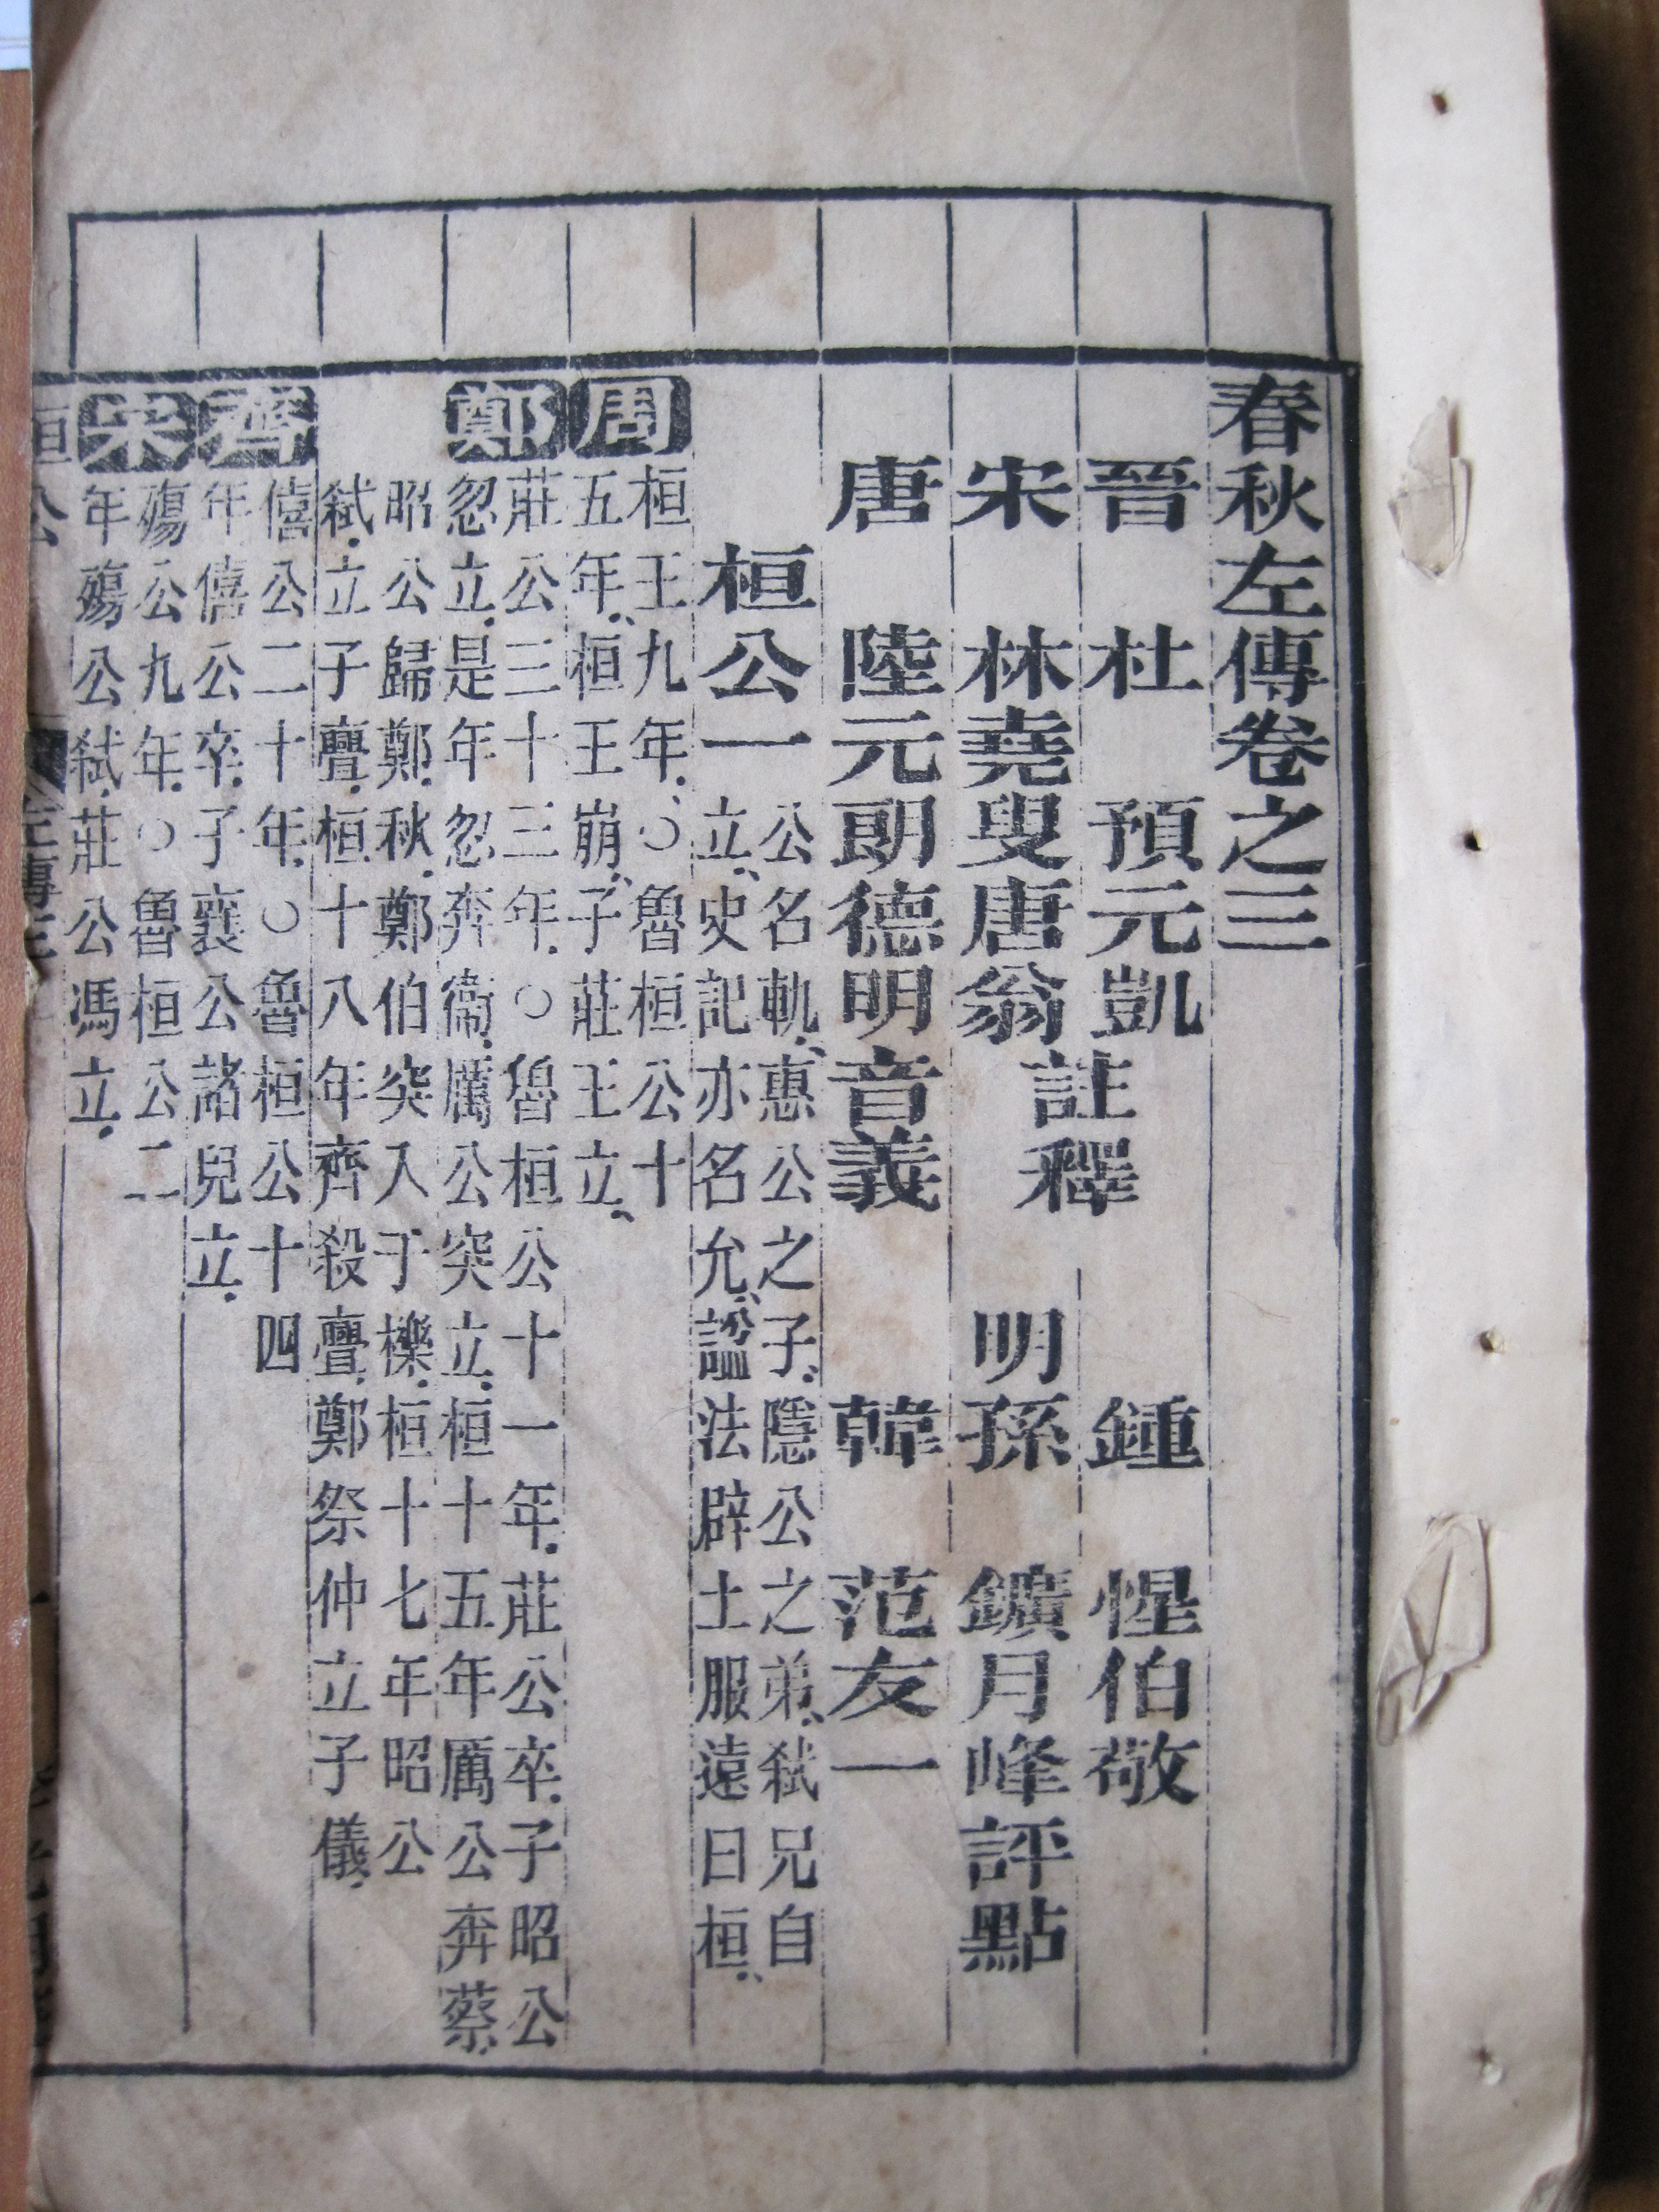 春秋左傳卷之三
晉 杜 預元凱 註釋 鍾 惺伯敬
宋 林堯叟唐翁 明孫 鑛月峰評點
唐 陸元朗德明音義 韓 范友一
桓公一
公名軌惠公之子隱公之弟弒兄自
立史記亦名允謚法辟土服遠曰桓
周
桓王九年○魯桓公十
五年桓王崩子莊王立
鄭
莊公三十三年○魯桓公十一年莊公卒子昭公
忽立是年忽奔衞厲公突立桓十五年厲公奔蔡
昭公歸鄭秋鄭伯突入于櫟桓十七年昭公
弒立子亹桓十八年齊殺亹鄭祭仲立子儀
齊
僖公二十年○魯桓公十四
年僖公卒子襄公諸兒立
宋
殤公九年○魯桓公二
年殤公弒莊公馮立
桓公